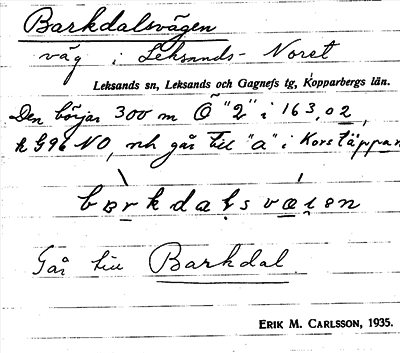 Barkdalsvägen
väg i Leksands-Noret
Leksands sn, Leksands och Gagnefs tg, Kopparbergs län.
Den börjar 300 m Ö "2" i 163,02,
k G96 NO, och går till "a" i Korstäppan
barkdalsvæien
Går till Barkdal.
ERIK M. CARLSSON, 1935.